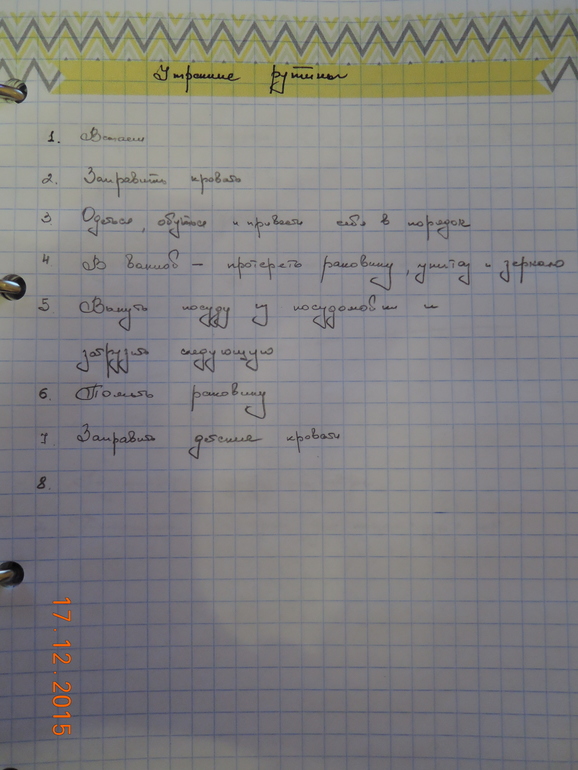 Утренние рутины
1. Встаем
2. Заправить кровать
3. Одеться, обуться и привести себя в порядок
4 В ванной – протереть раковину, унитаз и зеркало
5 Вынуть посуду из посудомойки и
загрузить следующую
6. Помыть раковину
7 Заправить детские кровати
8.
17.12.2015